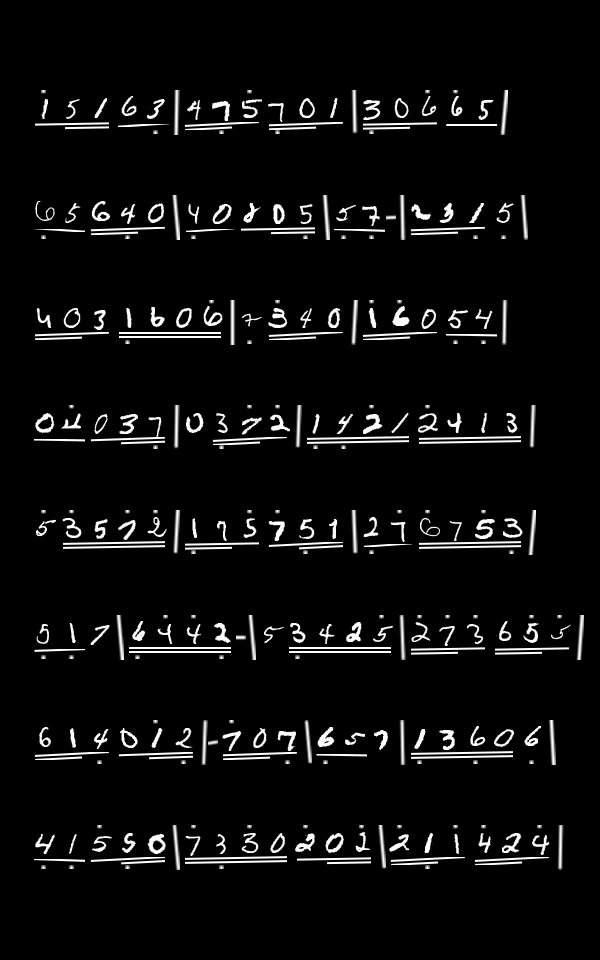 15163|475701|30665
65640|40805|57-|2315
4031606|7340|16054
04037|0372|14212413
53572|175751|276753
517|6442-|53425|273655
614012|-707|657|13606
41550|7330202|211424